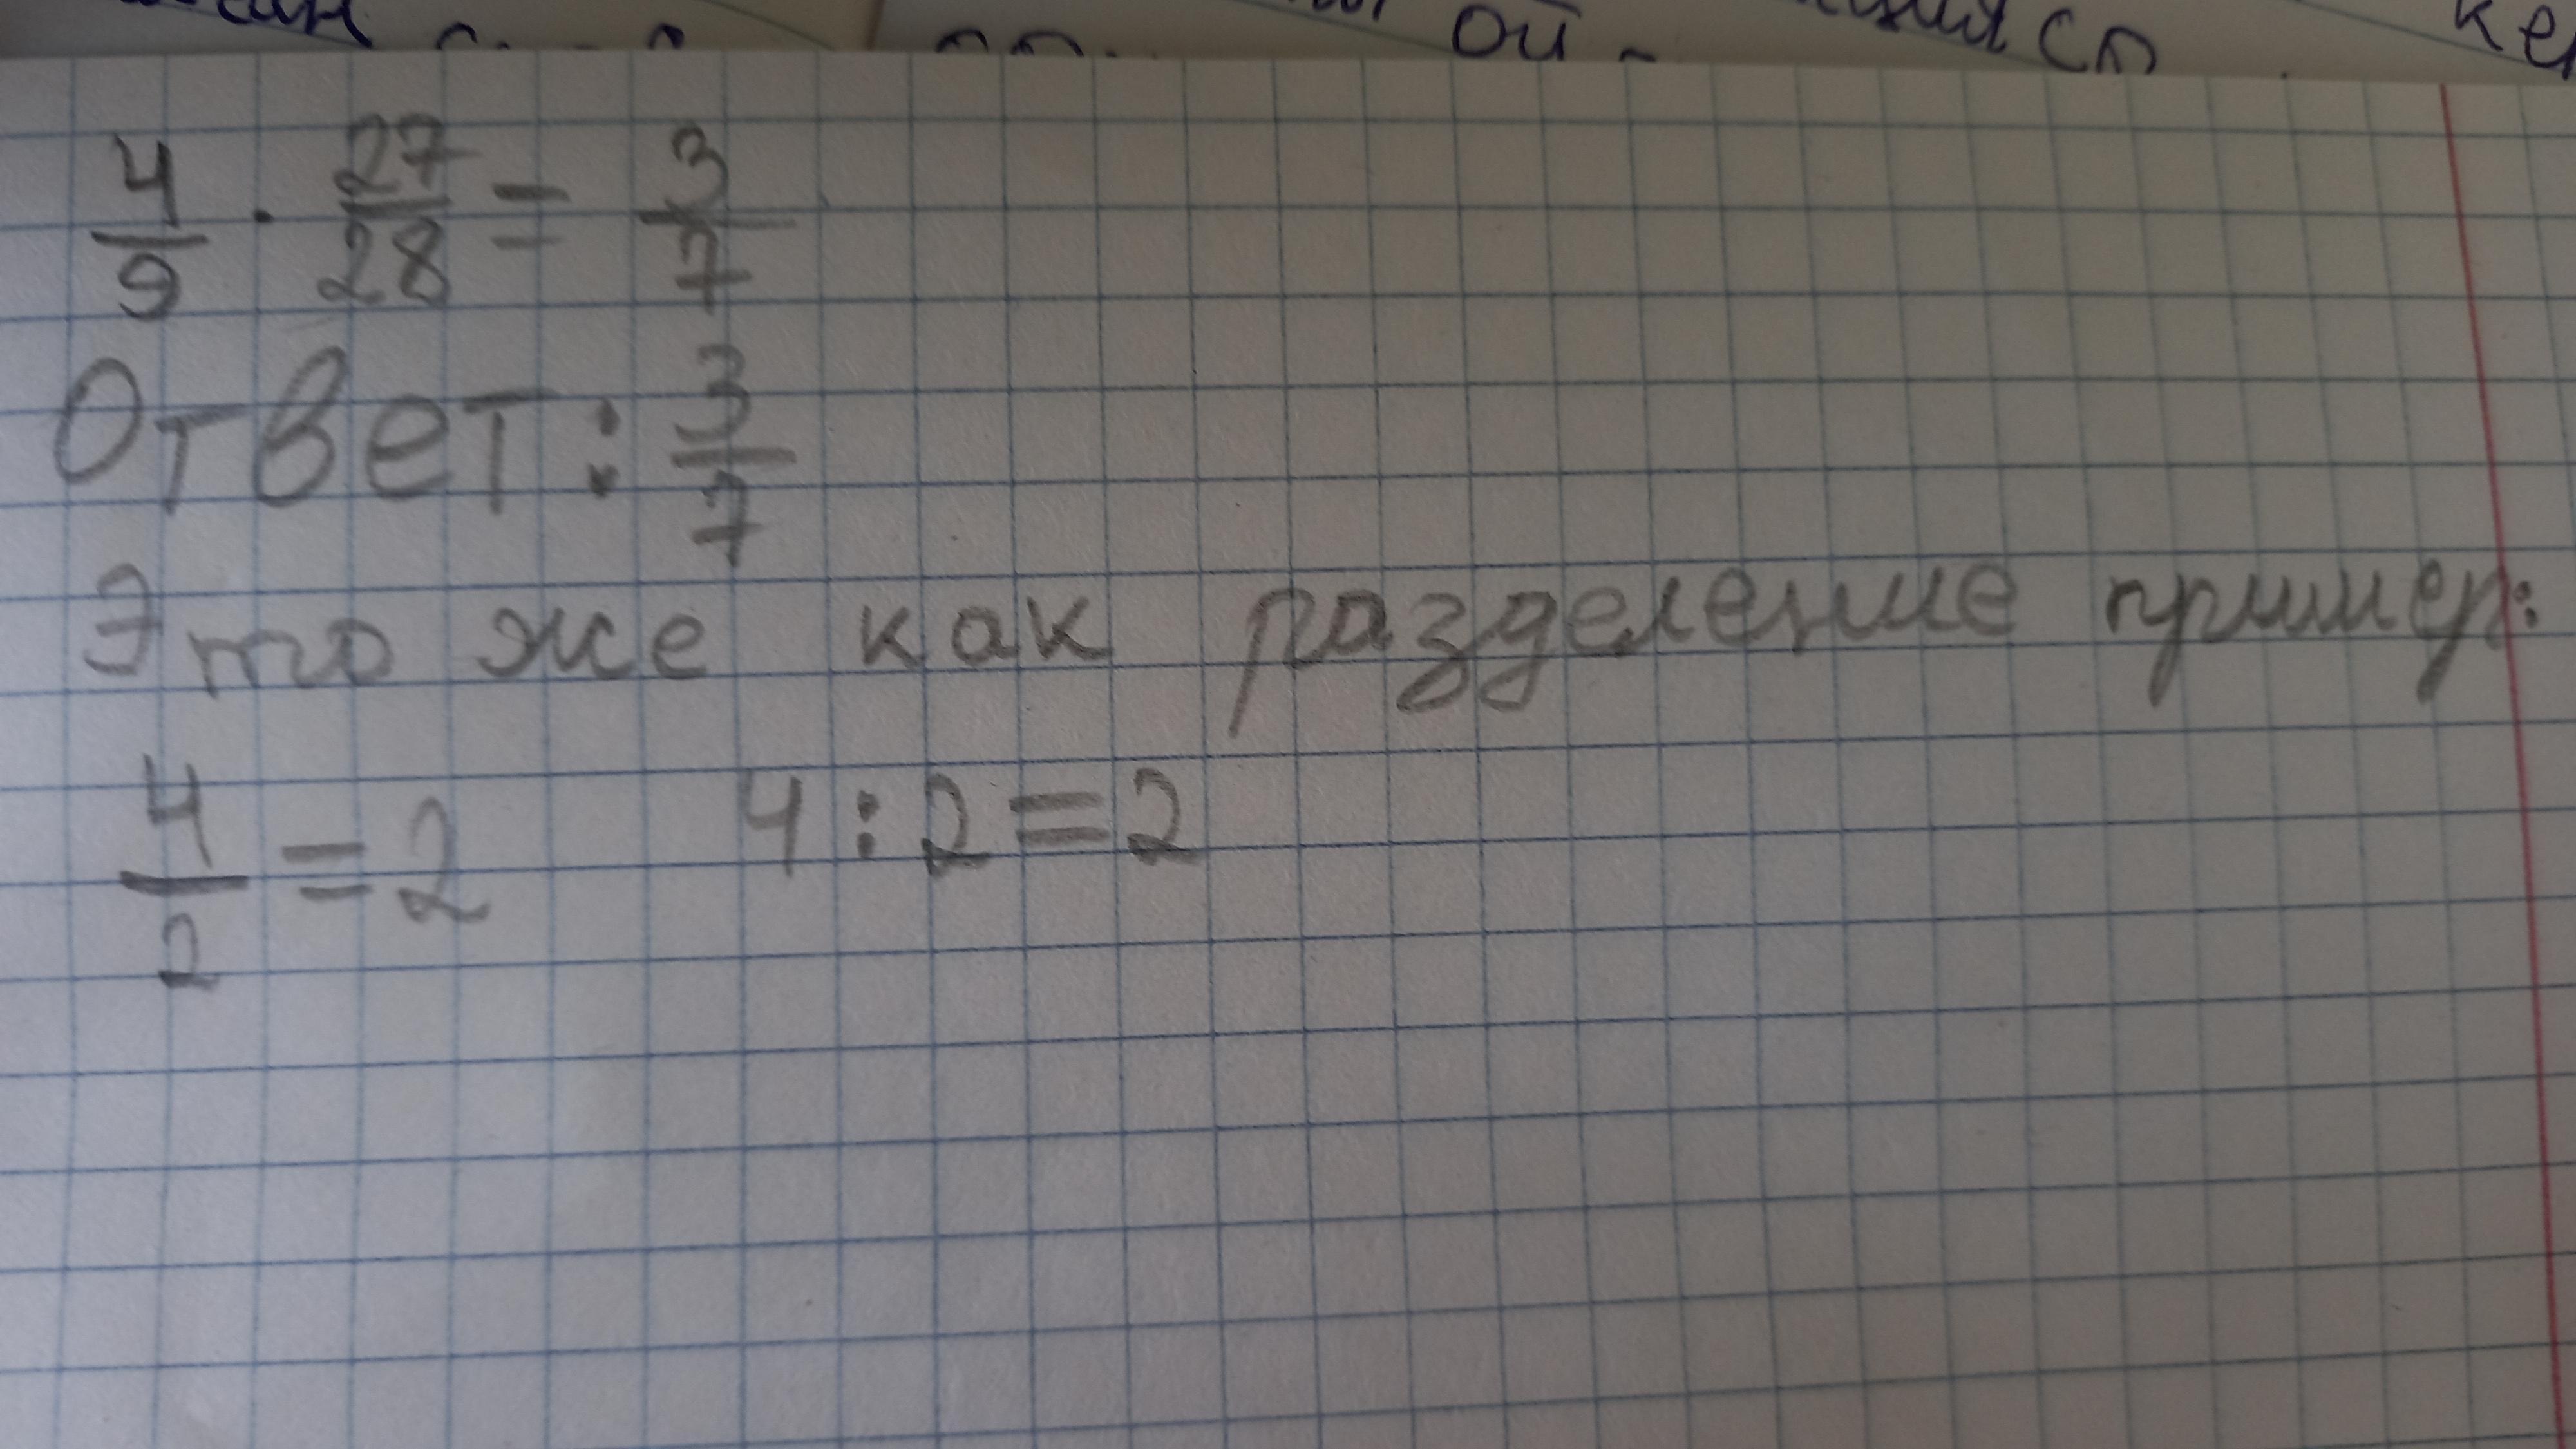 ой
кe
4/9 · 27/28 = 3/7
Ответ: 3/7
Это же как разделение пример:
4/2 = 2 4 : 2 = 2